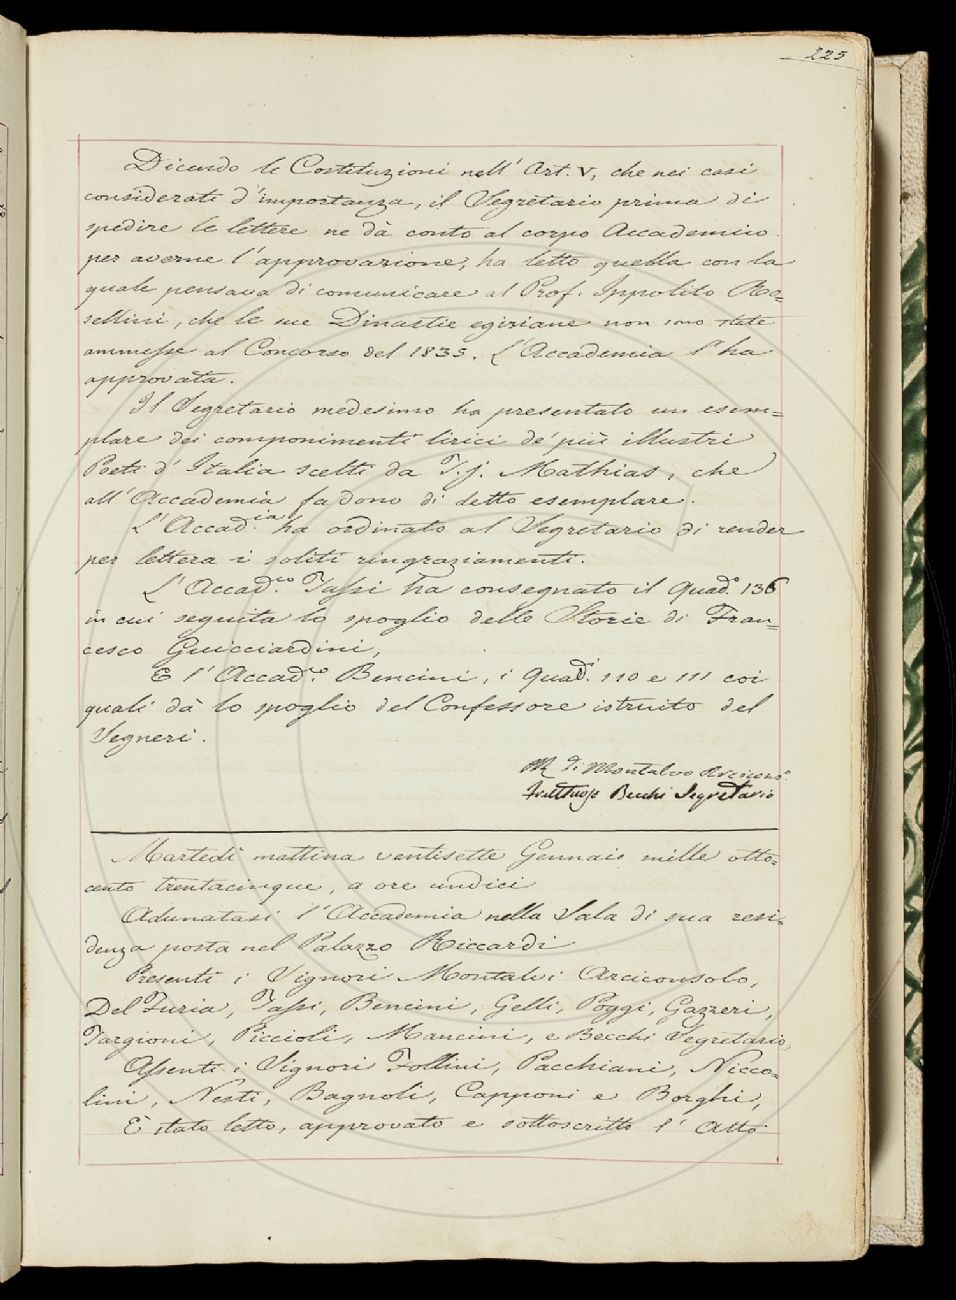 225
Dicendo le Costituzioni nell' Art. V, che nei casi
considerati d'importanza, il Segretario prima di
spedire le lettere ne dà conto al corpo Accademico
per averne l'approvazione, ha letto quella con la
quale pensava di comunicare al Prof. Ippolito Ro=
sellini, che le sue Dinastie egiziane non sono state
ammesse al Concorso del 1835. L'Accademia l'ha
approvata.
Il Segretario medesimo ha presentato un esem=
plare dei componimenti lirici de' più illustri
Poeti d'Italia scelti da T. J. Mathias, che
all'Accademia fa dono di detto esemplare.
L'Accad.ia ha ordinato al Segretario di render
per lettera i soliti ringraziamenti.
L'Accad.co Tassi ha consegnato il Quad.o 136
in cui seguita lo spoglio delle Storie di Fran=
cesco Guicciardini,
E l'Accad.co Bencini, i Quad.i 110 e 111 coi
quali dà lo spoglio del Confessore istruito del
Segneri.
di Montalvo
Fruttuoso Becchi Segretario
Martedì mattina ventisette Gennaio mille otto=
cento trentacinque, a ore undici
Adunatasi l'Accademia nella Sala di sua resi=
denza posta nel Palazzo Riccardi
Presenti i Signori Montalvi Arciconsolo,
Del Furia, Tassi, Bencini, Gelli, Poggi, Gazzeri,
Targioni, Piccioli, Mancini, e Becchi Segretario,
Assenti i Signori Follini, Pacchiani, Nicco=
lini, Nesti, Bagnoli, Capponi e Borghi,
È stato letto, approvato e sottoscritto l'Atto